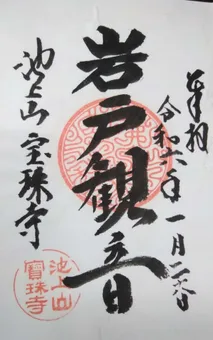 奉拝
令和六年一月
岩戸観音
池上山 宝珠寺
池上山
寶珠寺